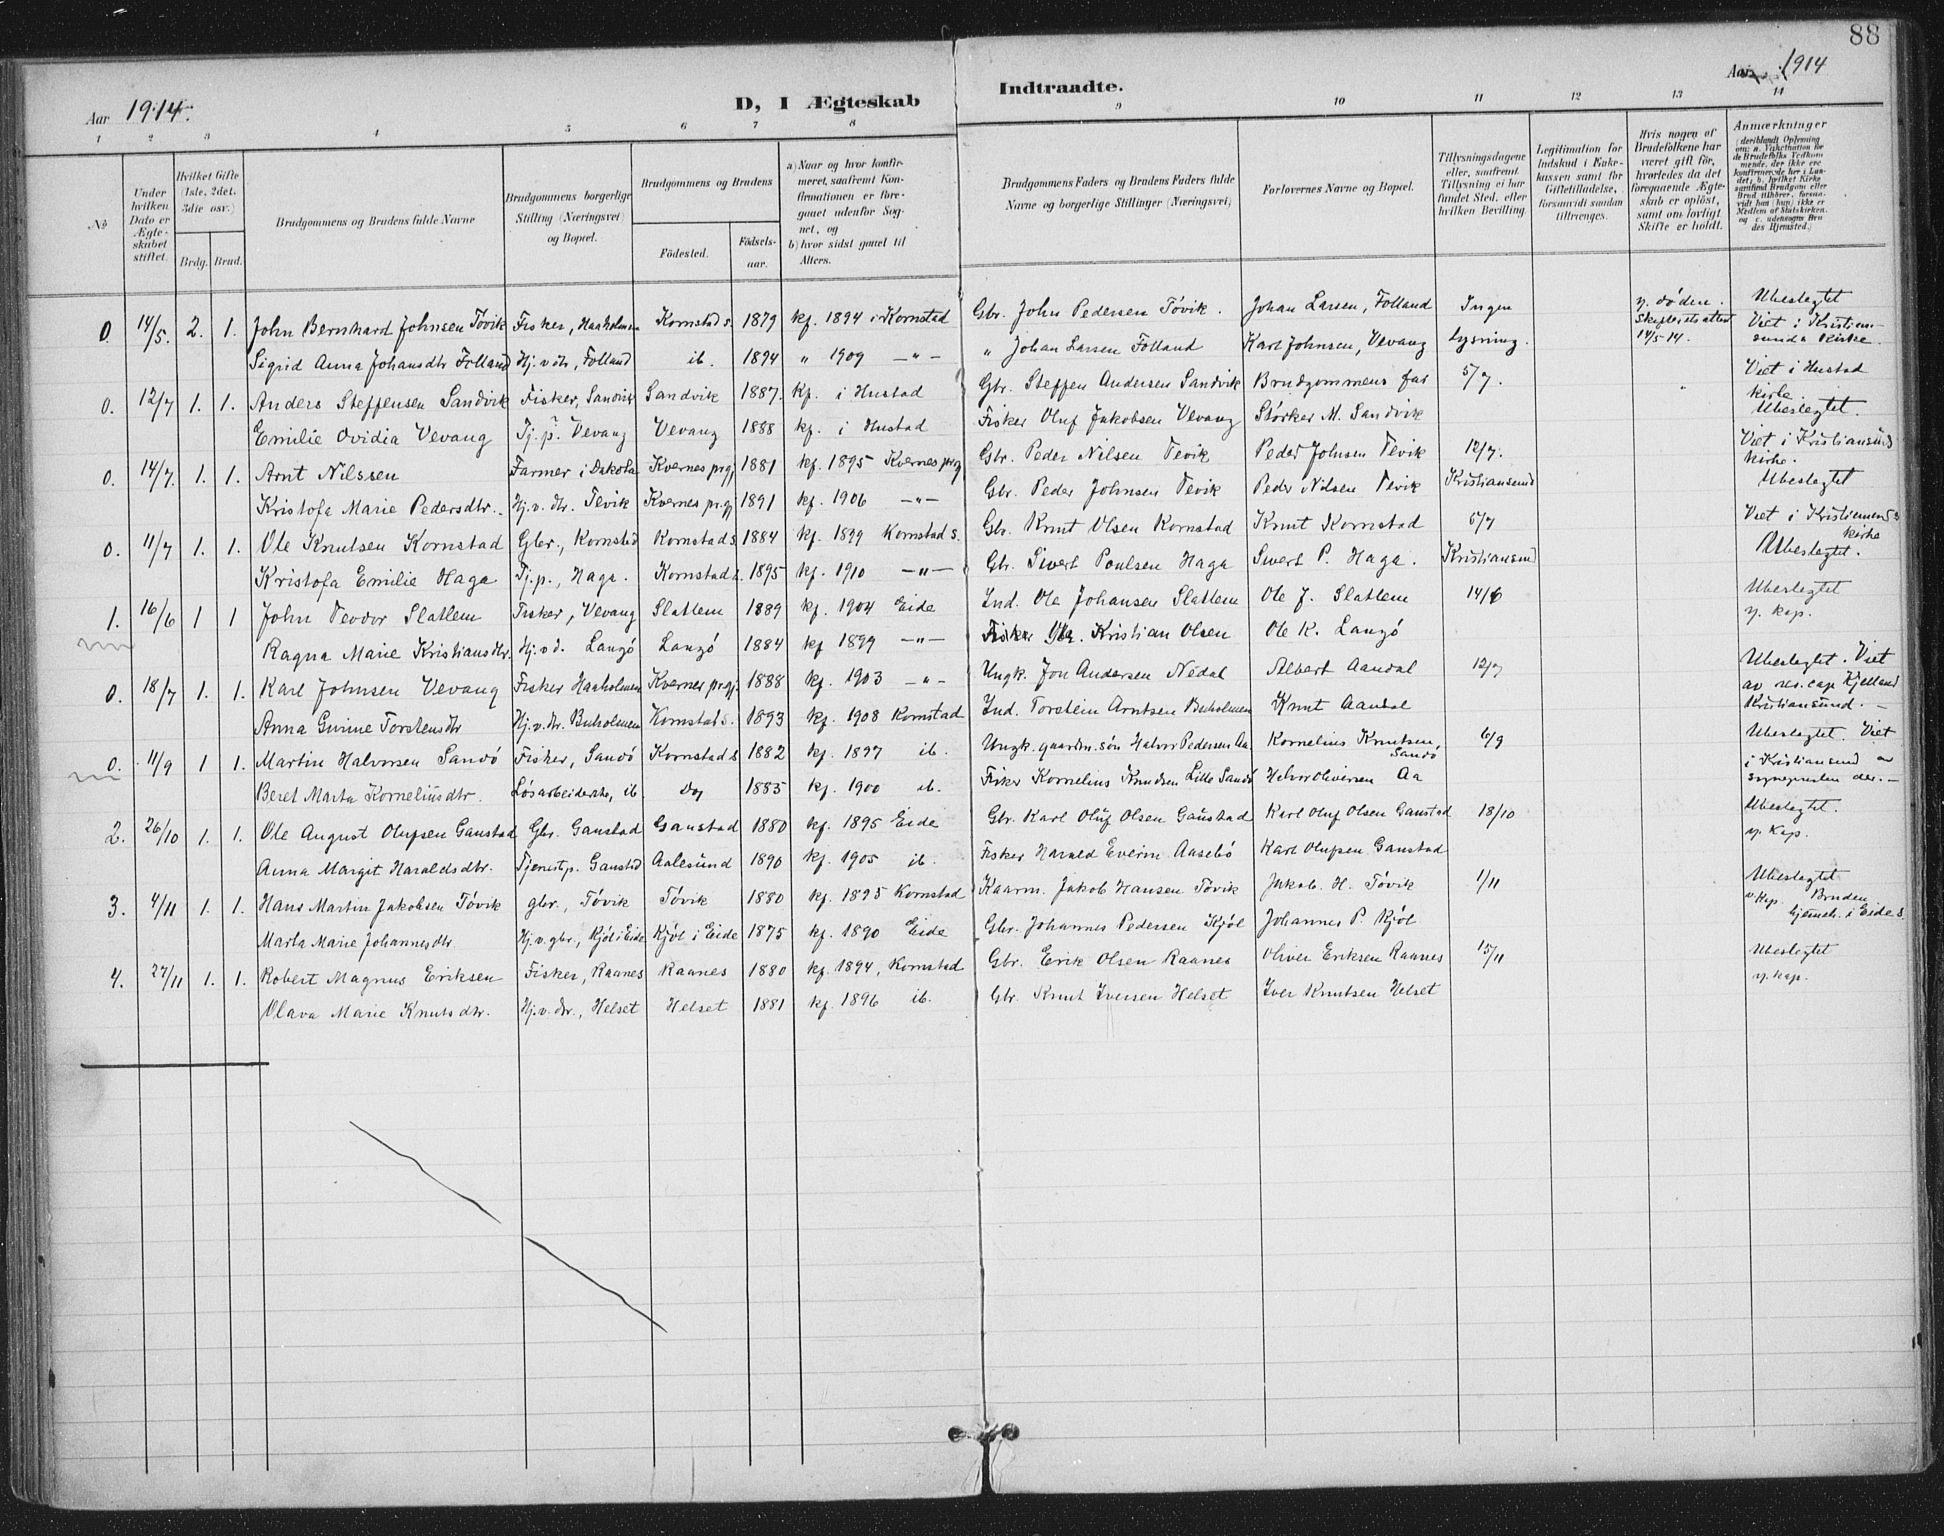 88
Aar 1914.
D, I Ægteskab Indtraadte.
Aar 1914
1 2 3 4 5 6 7 8 9 10 11 12 13 14
No
Under hvilken Dato er Ægteskabet stiftet.
Hvilket Gifte (1ste, 2det, 3die osv.)
Brdg. Brud.
Brudgommens og Brudens fulde Navne
Brudgommens borgerlige Stilling (Næringsvei) og Bopæl.
Brudgommens og Brudens
Födested. Födselsaar.
a) Naar og hvor konfirmeret, saafremt Konfirmationen er foregaaet udenfor Sognet, og
b) hvor sidst gaaet til Alters.
Brudgommens Faders og Brudens Faders fulde Navne og borgerlige Stillinger (Næringsvei)
Forlovernes Navne og Bopæl.
Tillysningsdagene eller, saafremt Tillysning ei har fundet Sted, efter hvilken Bevilling.
Legitimation for Indskud i Enkekassen samt for Giftetilladelse, forsaavidt saadan tiltrænges.
Hvis nogen af Brudefolkene har været gift för, hvorledes da det foregaaende Ægteskab er oplöst, samt om lovligt Skifte er holdt.
Anmærkninger
0 14/5. 2. 1. John Bernhard Johnsen Tövik Fisker, Haaholmen Kornstad s. 1879 kf. 1894 i Kornstad Gbr. John Pedersen Tövik. Johan Larsen, Folland Ingen v. döden. Ubeslegtet
Sigrid Anna Johansdtr Folland Hj. v. dtr, Folland ib. 1894 " 1909 —"— " Johan Larsen Folland Karl Johnsen, Vevang lysning. Skifteretsattest 14/5 14. Viet i Kristiansunds Kirke.
0. 12/7 1. 1. Anders Steffensen Sandvik Fisker, Sandvik Sandvik 1887. kf. i Hustad Gbr. Steffen Andersen Sandvik Brudgommens far 5/7. " Viet i Hustad kirke.
Emilie Ovidia Vevang Tj. p. Vevang Vevang 1888 kf. i Hustad Fisker Oluf Jakobsen Vevang Störker M. Sandvik Ubeslegtet.
0. 14/7. 1. 1. Arnt Nilssen Farmer i Dakota Kvernes prgj 1881 kf. 1895 Kvernes prgj Gbr. Peder Nilsen Tevik Peder Johnsen Tevik 12/7. Viet i Kristiansund kirke.
Kristofa Marie Pedersdtr. Hj. v. dtr. Tevik Kvernes prgj 1891 kf. 1906 —"— Gbr. Peder Johnsen Tevik Peder Nilsen Tevik Kristiansund Ubeslegtet
0. 11/7 1. 1. Ole Knutsen Kornstad Gbr., Kornstad Kornstad s 1884 kf. 1899 Kornstad s. Gbr. Knut Olsen Kornstad Knut Kornstad 5/7 Viet i Kristiansunds kirke
Kristofa Emilie Haga Tj. p., Haga. Kornstad s. 1895 kf. 1910 —"— Gbr. Sivert Poulsen Haga Sivert P. Haga. Kristiansund Ubeslegtet.
1. 16/6 1 1 John Teodor Slatlem Fisker, Vevang Slatlem 1889 kf. 1904 Eide Ind. Ole Johansen Slatlem Ole J. Slatlem 14/6 Ubeslegtet
Ragna Marie Kristiansdtr. Hj. v. d. Langö Langö 1884 kf. 1899 —"— Fisker Kristian Olsen Ole K. Langö v. kap.
0. 18/7 1. 1. Karl Johnsen Vevang Fisker Haaholmen Kvernes prgj. 1888 kf. 1903 —"— Ungk. Jon Andersen Nedal Albert Aandal 12/7 Ubeslegtet. Viet
Anna Gurine Torstensdtr Hj. v. dtr. Buholmen Kornstad s. 1893 kf. 1908 Kornstad Ind. Torstein Arntsen Buholmen Knut Aandal av res. cap Kjelland Kristiansund.—
0. 11/9 1 1. Martin Halvorsen Sandö Fisker, Sandö Kornstad s 1882 kf. 1897 ib. Ungk. gaardm. sön Halvor Pedersen Aa Kornelius Knutsen, Sandö 6/9 Ubeslegtet. Viet
Beret Marta Korneliusdtr. Lösarbeiderske, ib Do 1885 kf. 1900 ib. Fisker Kornelius Knudsen Lille Sandö Halvor Oliversen Aa i Kristiansund av sognepresten der.—
2. 26/10 1. 1. Ole August Olufsen Gaustad Gbr. Gaustad Gaustad 1880 kf. 1895 Eide Gbr. Karl Oluf Olsen Gaustad Karl Oluf Olsen Gaustad 18/10 Ubeslegtet.
Anna Margit Haraldsdtr. Tjenestp. Gaustad Aalesund 1890 kf. 1905 ib. Fisker Harald Aasebö Karl Olufsen Gaustad v. Kap.
3. 4/11 1. 1. Hans Martin Jakobsen Tövik gbr., Tövik Tövik 1880 kf. 1895 Kornstad Kaarm. Jakob Hansen Tövik Jakob. H. Tövik 1/11 Ubeslegtet
Marta Marie Johannesdtr Hj. v. gbr., Kjöl i Eide Kjöl i Eide 1875 kf. 1890 Eide Gbr. Johannes Pedersen Kjöl Johannes P. Kjöl v Kap. Bruden hjemh. i Eide s.
4. 27/11 1. 1. Robert Magnus Eriksen Fisker, Raanes Raanes 1880 kf. 1894, Kornstad Gbr. Erik Olsen Raanes Oliver Eriksen Raanes 15/11 Ubeslegtet
Olava Marie Knutsdtr. Hj. v. dtr., Helset Helset 1881 kf. 1896 ib. Gbr. Knut Iversen Helset Iver Knutsen Helset v. kap.